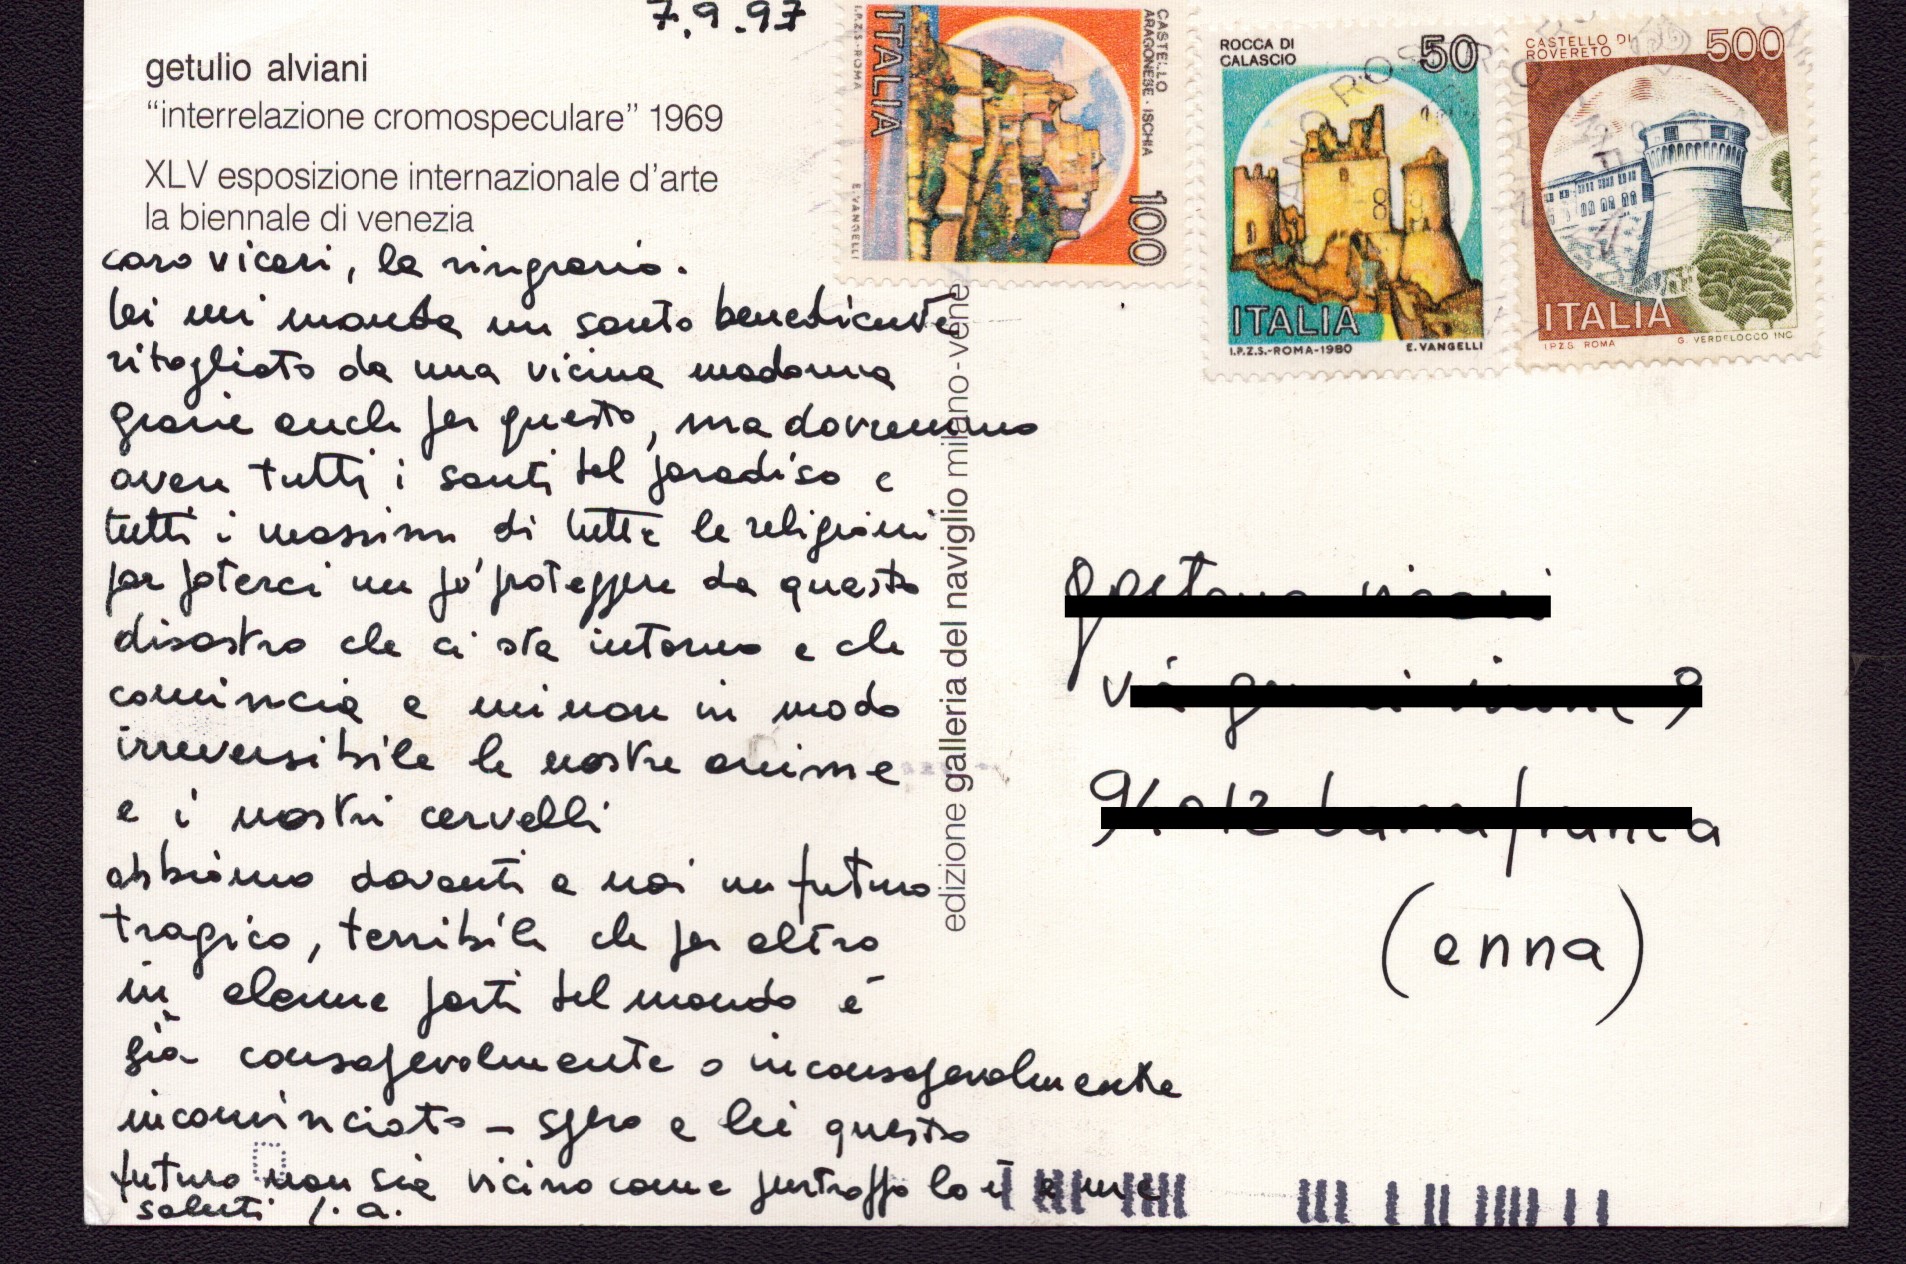 7.9.97
getulio alviani
“interrelazione cromospeculare” 1969
XLV esposizione internazionale d’arte
la biennale di venezia
caro vicari, la ringrazio.
lei mi manda un santo benedicente
ritagliato da una vicina madonna
grazie anche per questo, ma dovremmo
avere tutti i santi del paradiso e
tutti i massimi di tutte le religioni
per poterci un po' proteggere da questo
disastro che ci sta intorno e che
comincia a minare in modo
irreversibile le nostre anime
e i nostri cervelli
abbiamo davanti a noi un futuro
tragico, terribile che per altro
in alcune parti del mondo è
già consapevolmente o inconsapevolmente
incominciato - spero a lei questo
futuro non sia vicino come purtroppo lo è a me
saluti
edizione galleria del naviglio milano-vene
CASTELLO
ARAGONESE - ISCHIA
100
ITALIA
I.P.Z.S-ROMA
E. VANGELLI
ROCCA DI
CALASCIO
50
ITALIA
I.P.Z.S.-ROMA-1980 E. VANGELLI
CASTELLO DI
ROVERETO
500
ITALIA
I.P.Z.S. ROMA G. VERDELOCCO INC.
(enna)